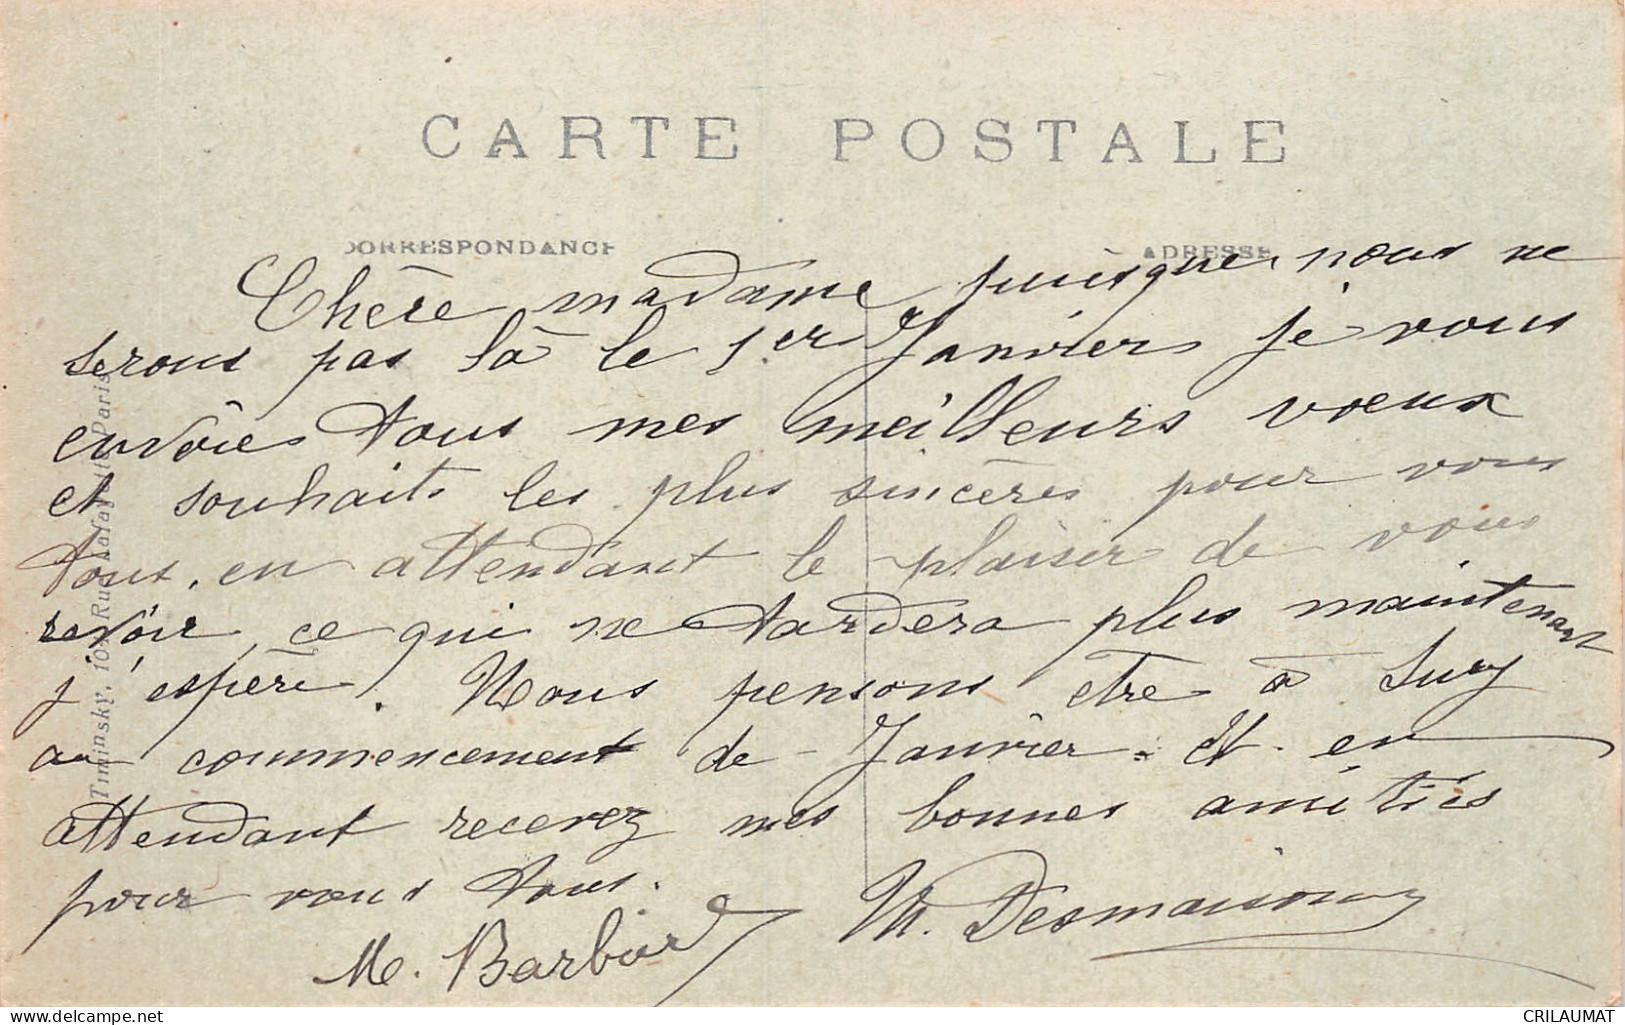 CARTE POSTALE
CORRESPONDANCE
ADRESSE
Chère madame puisque nous ne
serons pas là le 1er Janvier je vous
envoies tous mes meilleurs voeux
et souhaits les plus sincères pour vous
tous, en attendant le plaisir de vous
revoir, ce qui ne tardera plus maintenant
j'espère. Nous pensons être à Sucy
au commencement de Janvier. Et en
attendant recevez mes bonnes amitiés
pour vous tous.
M. Desmaisons
M. Barbier
Timinsky, 10 Rue Lafayette Paris
CRILAUMAT